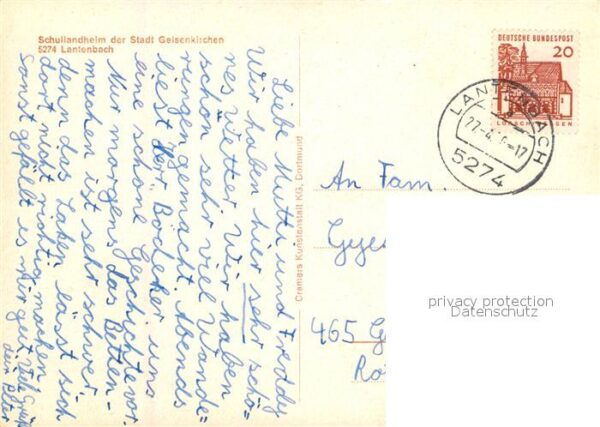 Schullandheim der Stadt Gelsenkirchen
5274 Lantenbach
Liebe Mutti und Freddy
Wir haben hier sehr schö-
nes Wetter. Wir haben
schon sehr viel Wande=
rungen gemacht. Abends
liest Herr Bödeker uns
eine schöne Geschichte vor.
Nur morgens das Betten-
machen ist sehr schwer
denn das Laken lässt sich
dort nicht richtig machen,
sonst gefällt es mir gut. Viele Grüße
dein Peter
Cramers Kunstanstalt KG, Dortmund
DEUTSCHE BUNDESPOST
20
LORSCH/HESSEN
LANTENBACH
5274
An Fam.
465 G
privacy protection
Datenschutz